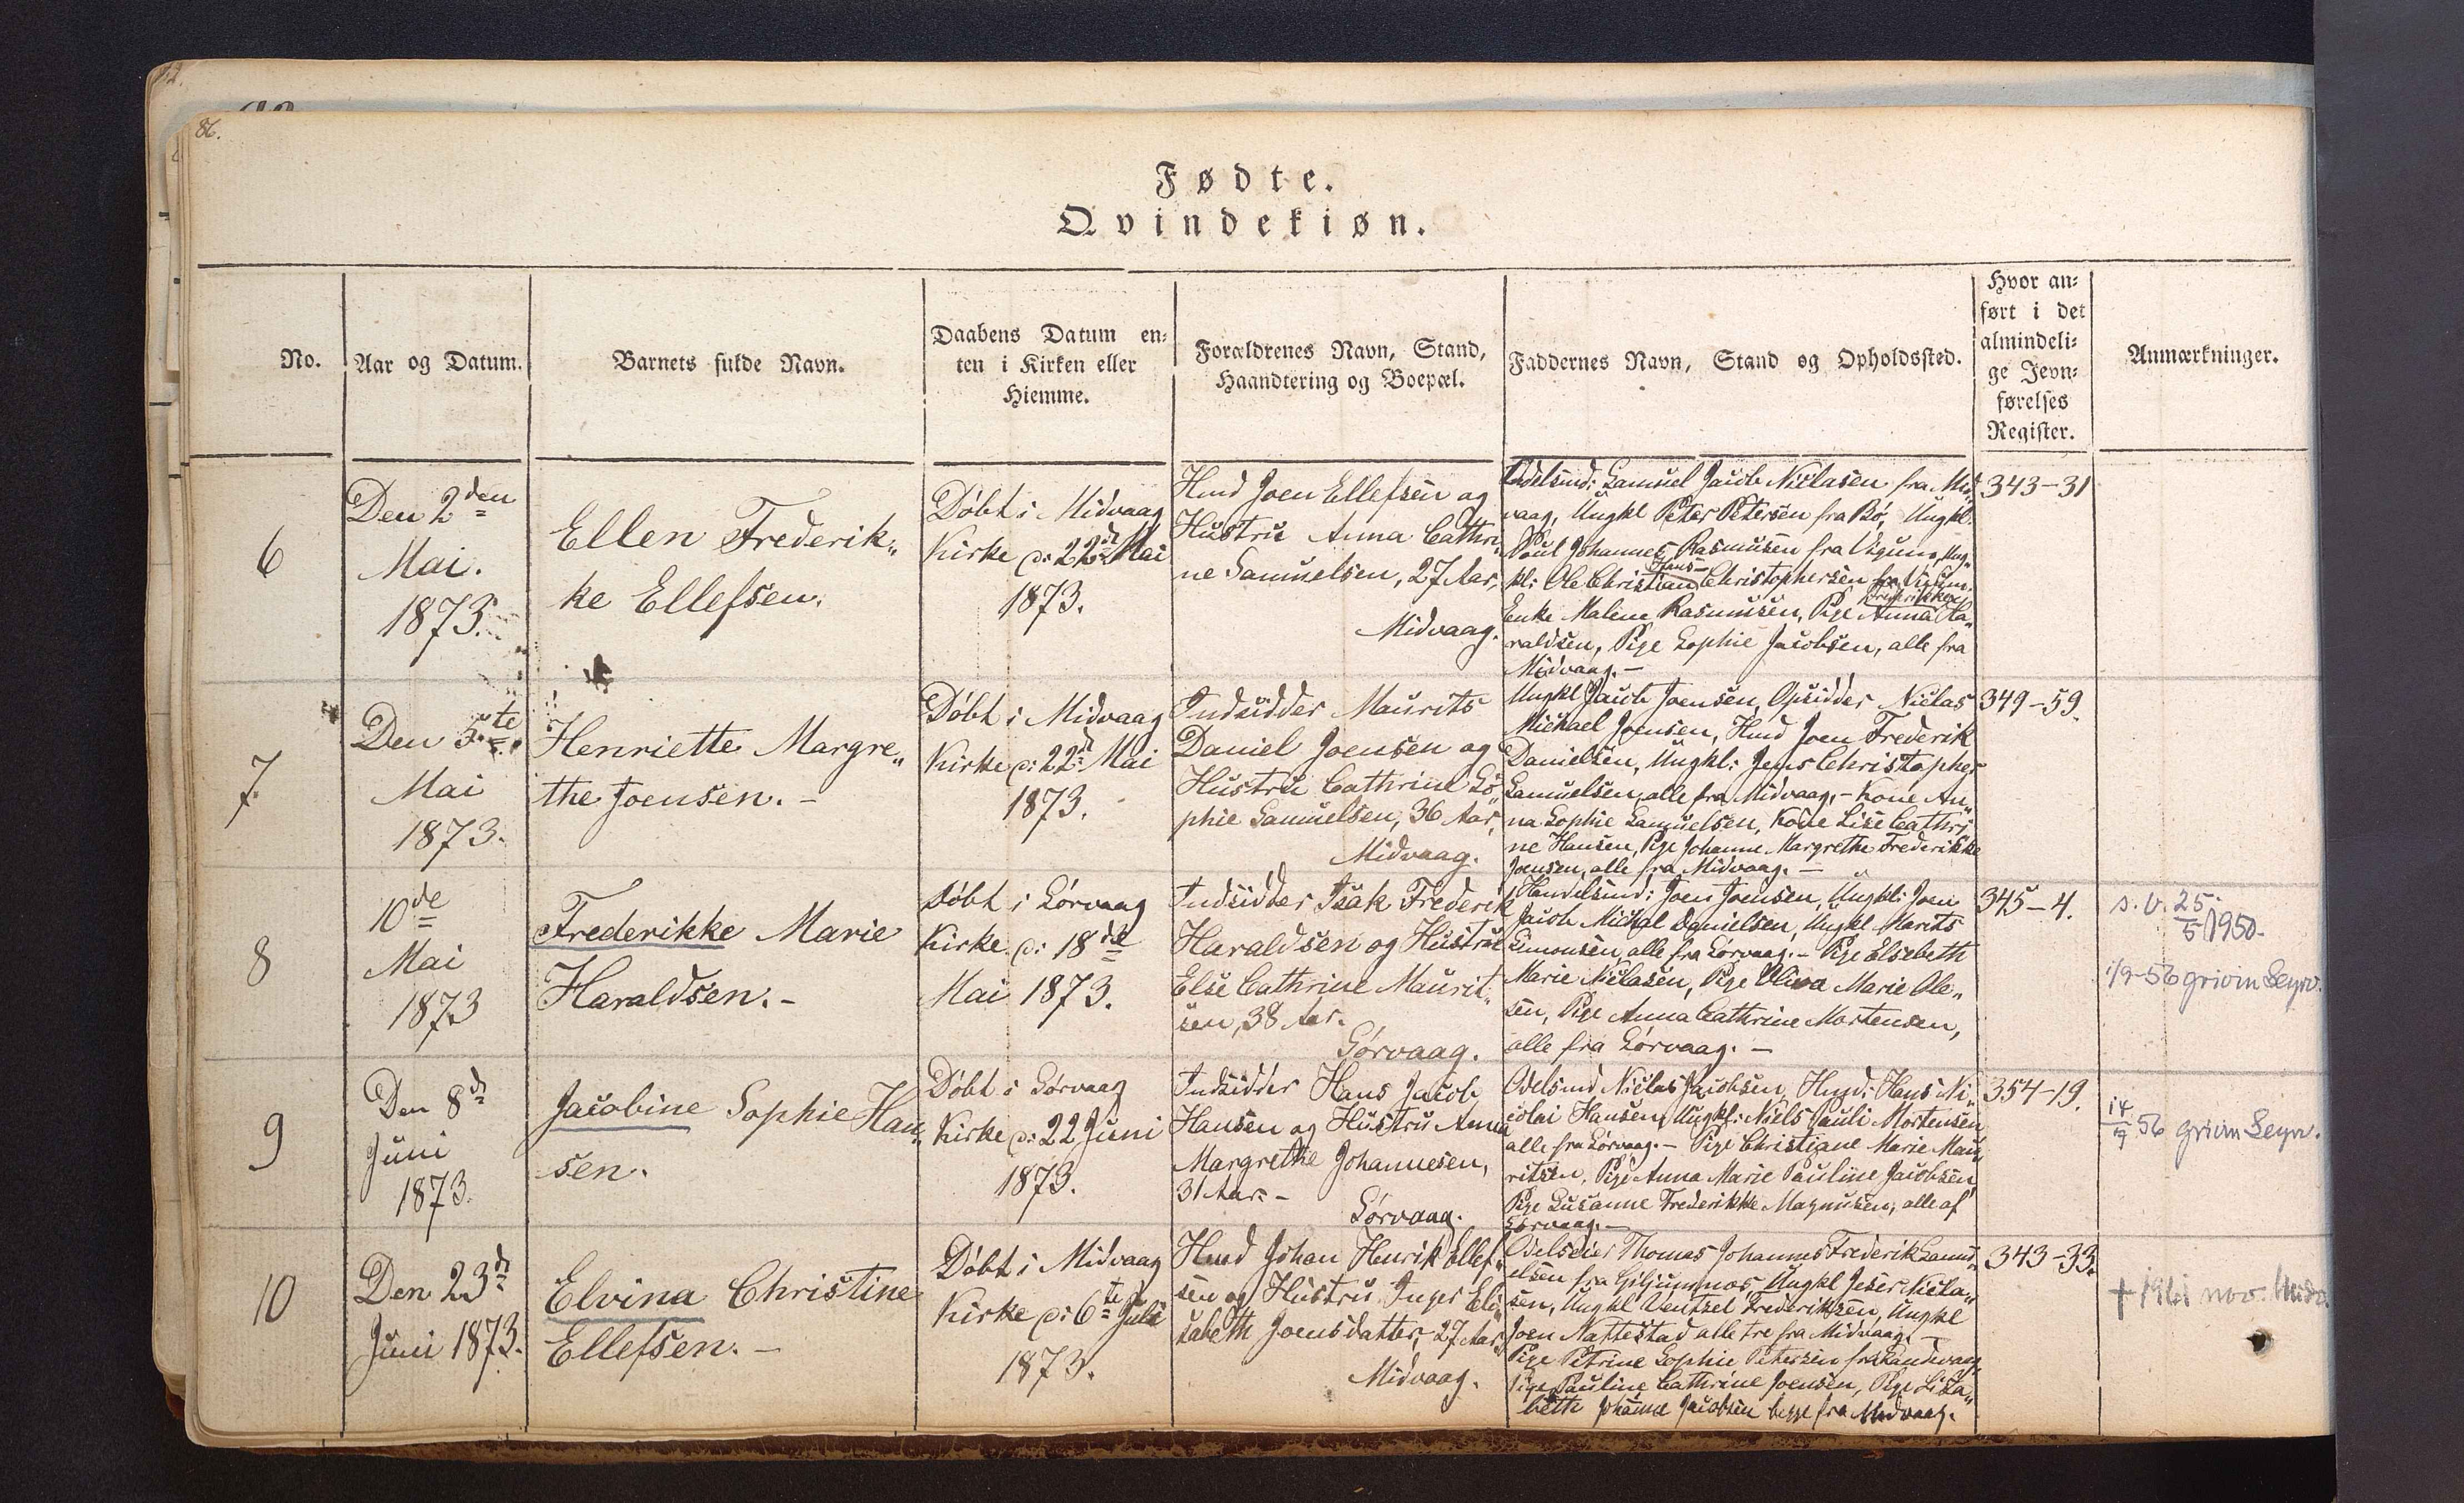 86.
Fødte.
Qvindekiøn.
No.
Aar og Datum.
Barnets fulde Navn.
Daabens Datum en-
ten i Kirken eller
Hiemme.
Forældrenes Navn, Stand,
Haandtering og Boepæl.
Faddernes Navn, Stand og Opholdssted.
Hvor an-
ført i det
almindeli-
ge Jevn-
førelses
Register.
Anmærkninger.
6
Den 2den
Mai.
1873.
Ellen Frederik„
ke Ellefsen.
Döbt i Midvaag
Kirke d: 22d Mai
1873.
Hmd Joen Ellefsen og
Hustru Anna Cathri„
ne Samuelsen, 27 Aar,
Midvaag.
Odelsmd: Samuel Jacob Niclasen fra Mid„
vaag, Ungkl Peter Petersen fra Bø, Ungkl.
Poul Johannes Rasmusen fra Vigum, Ung„
Hans
kl: Ole Christian Christophersen fra Vigum.
Frederikke
Enke Malene Rasmusen, Pige Anna Ha„
raldsen, Pige Sophie Jacobsen, alle fra
Midvaag. –
343-31
7.
Den 5te
Mai
1873.
Henriette Margre„
the Joensen. –
Döbt i Midvaag
Kirke d: 22d Mai
1873.
Indsidder Maurits
Daniel Joensen og
Hustru Cathrine So„
phie Samuelsen, 36 Aar,
Midvaag.
Ungkl Jacob Joensen, Opsidder Niclas
Michael Joensen, Hmd Joen Frederik
Danielsen, Ungkl: Jens Christopher
Samuelsen, alle fra Midvaag, – Kone An„
na Sophie Samuelsen, Kone Lise Cathri
ne Hansen, Pige Johanne Margrethe Frederikke
Joensen, alle fra Midvaag. –
349-59.
8
10de
Mai
1873
Frederikke Marie
Haraldsen. –
Döbt i Sörvaag
Kirke d: 18de
Mai 1873.
Indsidder Isak Frederik
Haraldsen og Hustru
Else Cathrine Maurit„
sen, 38 Aar.
Sörvaag.
Handelsmd: Joen Joensen, Ungkl: Joen
Jacob Michal Danielsen, Ungkl Marits
Simonsen, alle fra Sörvaag. – Pige Elsebeth
Marie Niclasen, Pige Oliva Marie Ole„
sen, Pige Anna Cathrine Mortensen,
alle fra Sörvaag. –
345-4.
s. v. 25/5 1950.
1/9-56 grivin Seyrv.
9
Den 8d
Juni
1873.
Jacobine Sophie Han„
sen.
Döbt i Sörvaag
Kirke d: 22 Juni
1873.
Indsidder Hans Jacob
Hansen og Hustru Anna
Margrethe Johannesen,
31 Aar. –
Sörvaag.
Odelsmd Niclas Jacobsen, Hmd: Hans Ni„
colai Hansen, Ungkl: Niels Pauli Mortensen
alle fra Sörvaag. – Pige Christiane Marie Mau„
ritsen, Pige Anna Marie Pauline Jacobsen,
Pige Susanne Frederikke Magnusen, alle af
Sörvaag. –
354-19.
14/9 56 grivin Seyrv.
10
Den 23d
Juni 1873.
Elvina Christine
Ellefsen. –
Döbt i Midvaag
Kirke d: 6te Juli
1873.
Hmd Johan Henrik Ellef„
sen og Hustru Inger Eli„
sabeth Joensdatter, 27 Aar,
Midvaag.
Odelseier Thomas Johannes Frederik Samu„
elsen fra Giljumnæs, Ungkl Jeser Nicla„
sen, Ungkl Ventzel Frederiksen, Ungkl
Joen Nattestad alle tre fra Midvaag. –
Pige Petrine Sophie Petersen fra Sandevaag,
Pige Pauline Cathrine Joensen, Pige Lisa„
beth Johanne Jacobsen begge fra Midvaag.
343-33.
+ 1961 nov. Midv.